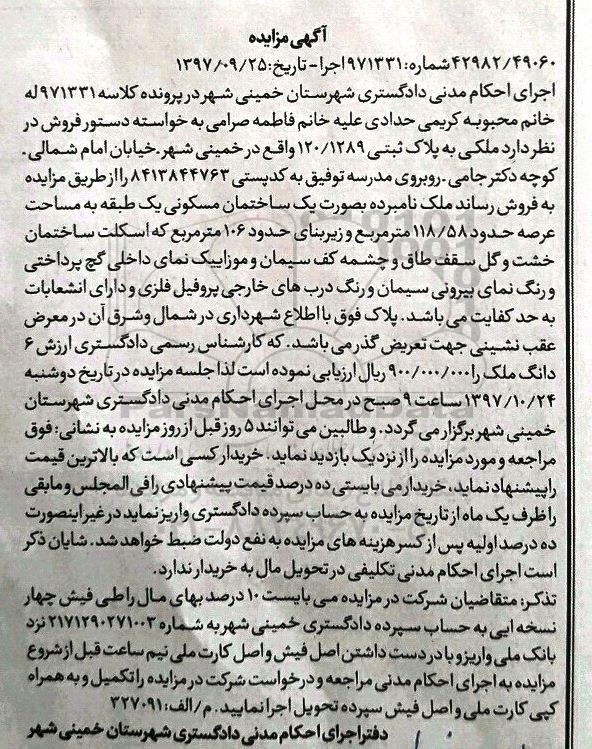 آگهی مزایده
۴۲۹۸۲/۴۹۰۶۰ شماره: ۹۷۱۳۳۱ اجرا - تاریخ: ۱۳۹۷/۰۹/۲۵
اجرای احکام مدنی دادگستری شهرستان خمینی شهر در پرونده کلاسه ۹۷۱۳۳۱ له
خانم محبوبه کریمی حدادی علیه خانم فاطمه صرامی به خواسته دستور فروش در
نظر دارد ملکی به پلاک ثبتی ۱۲۰/۱۲۸۹ واقع در خمینی شهر ـ خیابان امام شمالی ـ
کوچه دکتر جامی ـ روبروی مدرسه توفیق به کدپستی ۸۴۱۳۸۴۴۷۶۳ را از طریق مزایده
به فروش رساند ملک نامبرده بصورت یک ساختمان مسکونی یک طبقه به مساحت
عرصه حدود ۱۱۸/۵۸ مترمربع و زیربنای حدود ۱۰۶ مترمربع که اسکلت ساختمان
خشت و گل سقف طاق و چشمه کف سیمان و موزاییک نمای داخلی گچ پرداختی
و رنگ نمای بیرونی سیمان و رنگ درب های خارجی پروفیل فلزی و دارای انشعابات
به حد کفایت می باشد. پلاک فوق با اطلاع شهرداری در شمال و شرق آن در معرض
عقب نشینی جهت تعریض گذر می باشد. که کارشناس رسمی دادگستری ارزش ۶
دانگ ملک را ۹۰۰/۰۰۰/۰۰۰ ریال ارزیابی نموده است لذا جلسه مزایده در تاریخ دوشنبه
۱۳۹۷/۱۰/۲۴ ساعت ۹ صبح در محل اجرای احکام مدنی دادگستری شهرستان
خمینی شهر برگزار می گردد. و طالبین می توانند ۵ روز قبل از روز مزایده به نشانی: فوق
مراجعه و مورد مزایده را از نزدیک بازدید نماید. خریدار کسی است که بالاترین قیمت
را پیشنهاد نماید، خریدار می بایستی ده درصد قیمت پیشنهادی را فی المجلس و مابقی
را ظرف یک ماه از تاریخ مزایده به حساب سپرده دادگستری واریز نماید در غیر اینصورت
ده درصد اولیه پس از کسر هزینه های مزایده به نفع دولت ضبط خواهد شد. شایان ذکر
است اجرای احکام مدنی تکلیفی در تحویل مال به خریدار ندارد.
تذکر: متقاضیان شرکت در مزایده می بایست ۱۰ درصد بهای مال را طی فیش چهار
نسخه ایی به حساب سپرده دادگستری خمینی شهر به شماره ۲۱۷۱۲۹۰۲۷۱۰۰۳ نزد
بانک ملی واریز و با در دست داشتن اصل فیش و اصل کارت ملی نیم ساعت قبل از شروع
مزایده به اجرای احکام مدنی مراجعه و درخواست شرکت در مزایده را تکمیل و به همراه
کپی کارت ملی و اصل فیش سپرده تحویل اجرا نمایید. م/الف: ۳۲۷۰۹۱
دفتر اجرای احکام مدنی دادگستری شهرستان خمینی شهر